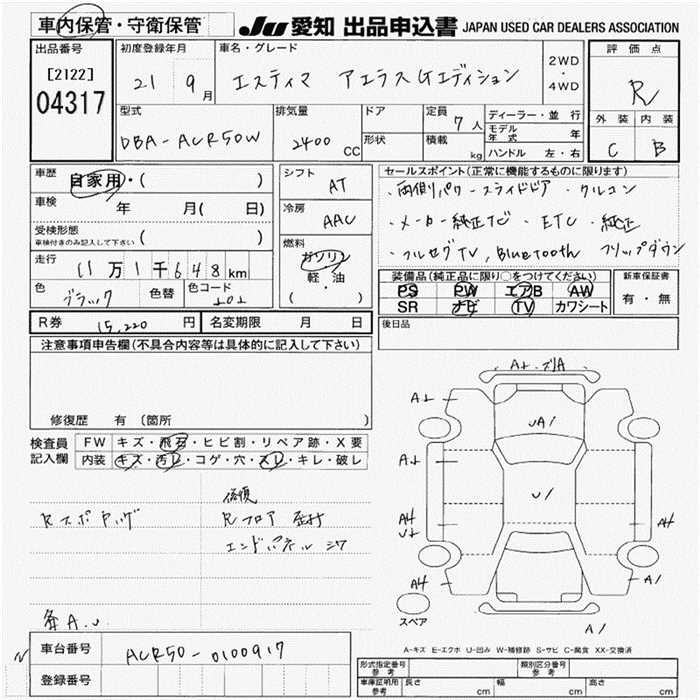 車内保管・守衛保管
JU 愛知 出品申込書 JAPAN USED CAR DEALERS ASSOCIATION
出品番号 初度登録年月 車名・グレード 評価点
[2122]
04317
21 9月 エスティマ アエラスGエディション 2WD・4WD R
型式 排気量 ドア 定員 7人 ディーラー・並行 外装 内装
形状 積載 kg モデル年式 年
DBA-ACR50W 2400CC ハンドル 左・右 C B
車歴 自家用・( ) シフト AT
セールスポイント(正常に機能するものに限ります)
・両側パワースライドドア ・クルコン
・メーカー純正ナビ ・ETC ・純正
・フルセグTV, Bluetooth フリップダウン
車検 年 月( 日) 冷房 AAC
受検形態
車検付きのみ記入して下さい ( )
燃料 ガソリン・軽・油 ( )
走行 11万1千648km
色 ブラック 色替 色コード 202
装備品(純正品に限り○をつけてください) 新車保証書
PS PW エアB AW 有・無
SR ナビ TV カワシート
R券 15,220円 名変期限 月 日
後日品
注意事項申告欄(不具合内容等は具体的に記入して下さい)
修復歴 有 (箇所 )
検査員 FW キズ・飛石・ヒビ割・リペア跡・X要
記入欄 内装 キズ・汚レ・コゲ・穴・スレ・キレ・破レ
修復
Rフロア
エンドパネル
A.U.
A上
A上
UA1
A上
U1
A4
U上
A4
A4
A1
A1
スペア
A-キズ E-エクボ U-凹み W-補修跡 S-サビ C-腐食 XX-交換済
車台番号 ACR50-0100917
登録番号
形式指定番号 参考 類別区分番号 参考
車庫証明用 参考 長さ cm 幅 cm 高さ cm